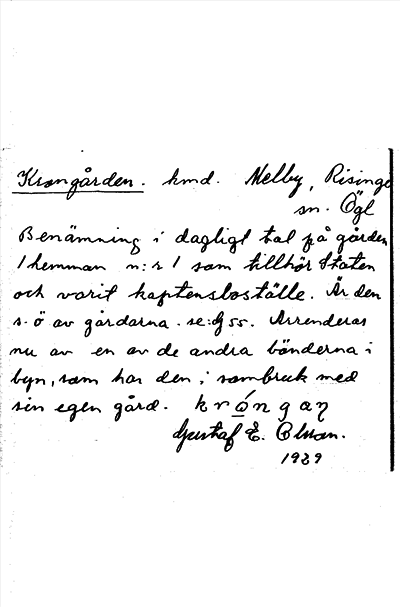 Krongården. hmd. Melby, Risinge
sn. Ögl
Benämning i dagligt tal på gården
1 hemman n:r 1 som tillhör Staten
och varit kaptensboställe. Är den
s.ö av gårdarna. se: g ss. Arrenderas
nu av en av de andra bönderna i
byn, som har den, i sambruk med
sin egen gård. krón gaŋ
Gustaf E. Olsson.
1929